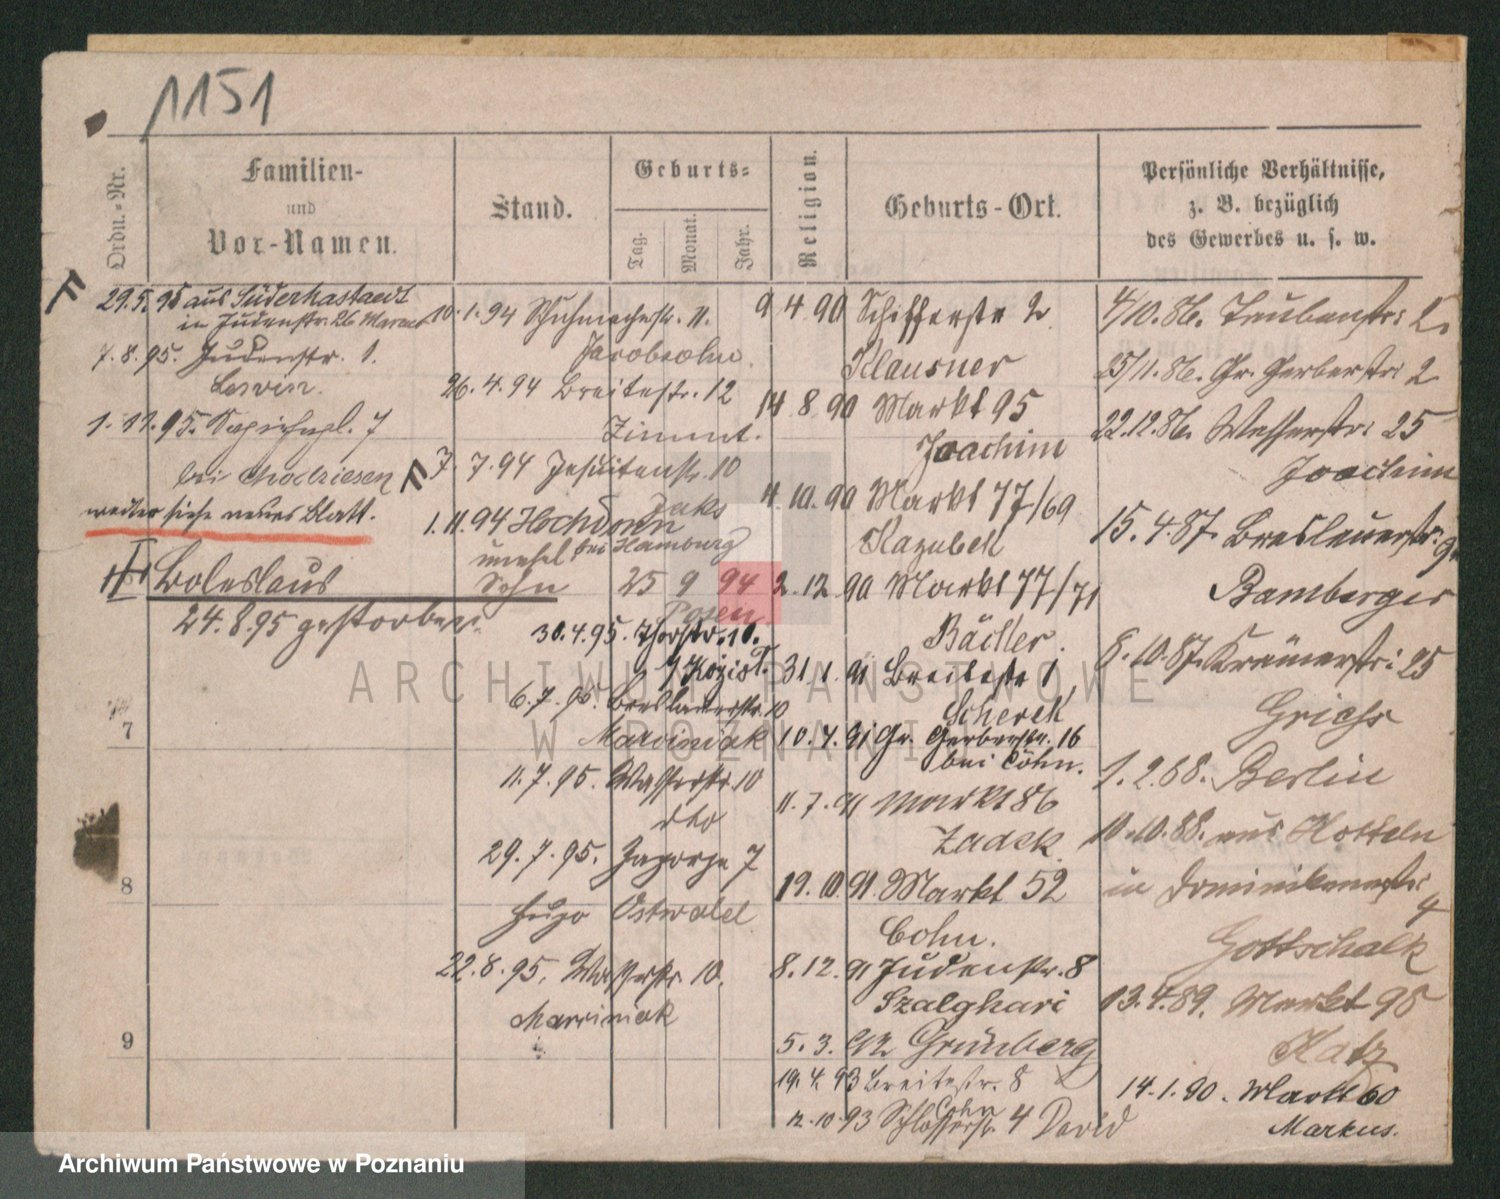 1151
Ordn.-Nr.
Familien-
und
Vor-Namen.
Stand.
Geburts-
Tag.
Monat.
Jahr.
Religion.
Geburts-Ort.
Persönliche Verhältnisse,
z. B. bezüglich
des Gewerbes u. s. w.
29.5.95 aus Süderhastaedt
in Judenstr. 26
7.8.95. Judenstr. 1.
Lewin.
1.11.95. 7
bei
weiter siehe neues Blatt.
Boleslaus Sohn 25 9 94
Posen
24.8.95 gestorben.
7
8
9
10.1.94 Schuhmacherstr. 11.
Jacobsohn
26.4.94 Breitestr. 12
Zimmt.
7.7.94 Jesuitenstr. 10
Jaks
1.11.94 Hochdonn
bei Hamburg
30.4.95. Thorstr. 10.
6.7.95. Breslauerstr. 10
Marciniak
11.7.95. Wasserstr. 10
dto
29.7.95. Zagorze 7
Hugo Ostwald
22.8.95. Wasserstr. 10.
Marciniak
9 4 90 Schifferstr 2
Klausner
14 8 90 Markt 95
Joachim
4.10.90 Markt 77/69
Kazubek
2.12.90 Markt 77/71
Bächler.
31.1.91 Breitestr 1
Scherek
10.4.91 Gr. Gerberstr. 16
bei Cohn.
11.7.91 Markt 86
Zadek
19.10.91. Markt 52
Cohn.
8.12.91 Judenstr. 8
Szalghari
5.3.92 Grünberg
19.4.93 Breitestr. 8
Cohn
12.10.93 Schlosserstr 4 David
4/10.86. Taubenstr: 2.
25/11.86. Gr. Gerberstr: 2
22.12.86. Wasserstr: 25
Joachim
15.4.87. Breslauerstr:
Bamberger
8.10.87. Krämerstr: 25
1.2.88. Berlin
10.10.88. aus
in Dominikanerstr:
4
Gottschalk
13.4.89. Markt 95
Katz
14.1.90. Markt 60
Markus.
ARCHIWUM PAŃSTWOWE
W POZNANIU
Archiwum Państwowe w Poznaniu